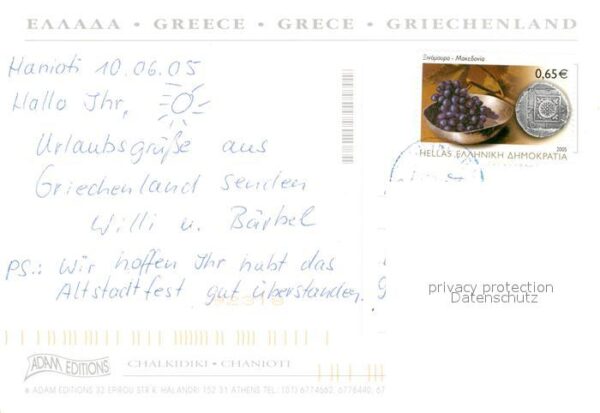 ΕΛΛΑΔΑ • GREECE • GRECE • GRIECHENLAND
Hanioti 10.06.05
Hallo Ihr,
Urlaubsgrüße aus
Griechenland senden
Willi u. Bärbel
PS.: Wir hoffen Ihr habt das
Altstadtfest gut überstanden.
Ξινόμαυρο - Μακεδονία
0,65€
2005
HELLAS ΕΛΛΗΝΙΚΗ ΔΗΜΟΚΡΑΤΙΑ
privacy protection
Datenschutz
ADAM EDITIONS
CHALKIDIKI • CHANIOTI
ADAM EDITIONS 32 EPIROU STR K. HALANDRI 152 31 ATHENS TEL.: (01) 6774662, 6778440,